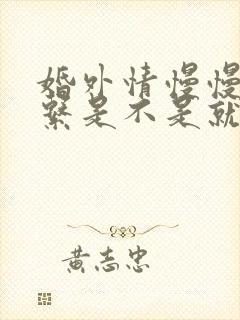 婚外情慢慢
系是不是就
黄志忠